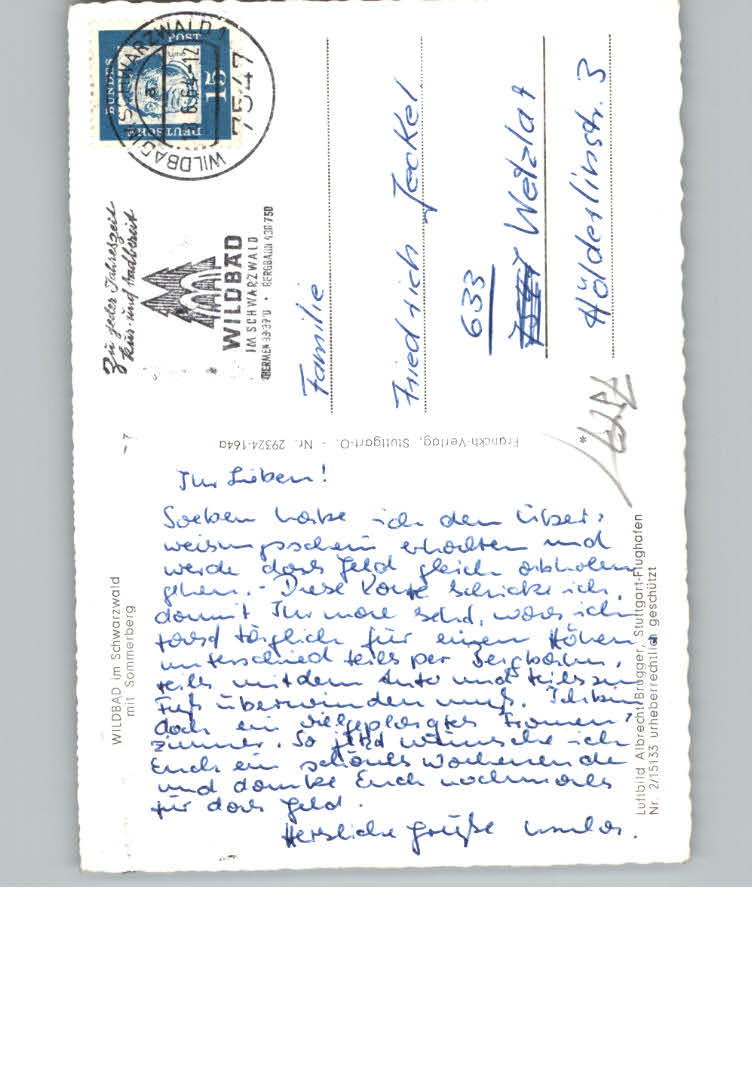 WILDBAD im Schwarzwald
mit Sommerberg
Ihr Lieben!
Soeben habe ich den Über-
weisungsschein erhalten und
werde das Geld gleich abholen
gehen. - Diese Karte schicke ich,
damit Ihr mal seht, was ich
fast täglich für einen Höhen
unterschied teils per Bergbahn,
teils mit dem Auto und teils zu
Fuß überwinden muß. Ich bin
doch ein vielgeplagtes Frauen-
zimmer. So jetzt wünsche ich
Euch ein schönes Wochenende
und danke Euch nochmals
für das Geld.
Herzliche Grüße
Luftbild Albrecht Brugger, Stuttgart-Flughafen
Nr. 2/15133 urheberrechtlich geschützt
Franckh-Verlag, Stuttgart-O. - Nr. 29324-164a
Zu jeder Jahreszeit
Kur- und badbereit
WILDBAD
IM SCHWARZWALD
THERMEN 33-37° · BERGBAHN 430-750
WILDBAD IM SCHWARZWALD 1
6.64-12
7547
a
DEUTSCHE
BUNDESPOST
15
Familie
Friedrich Jeckel
633
Wetzlar
Hölderlinstr. 3